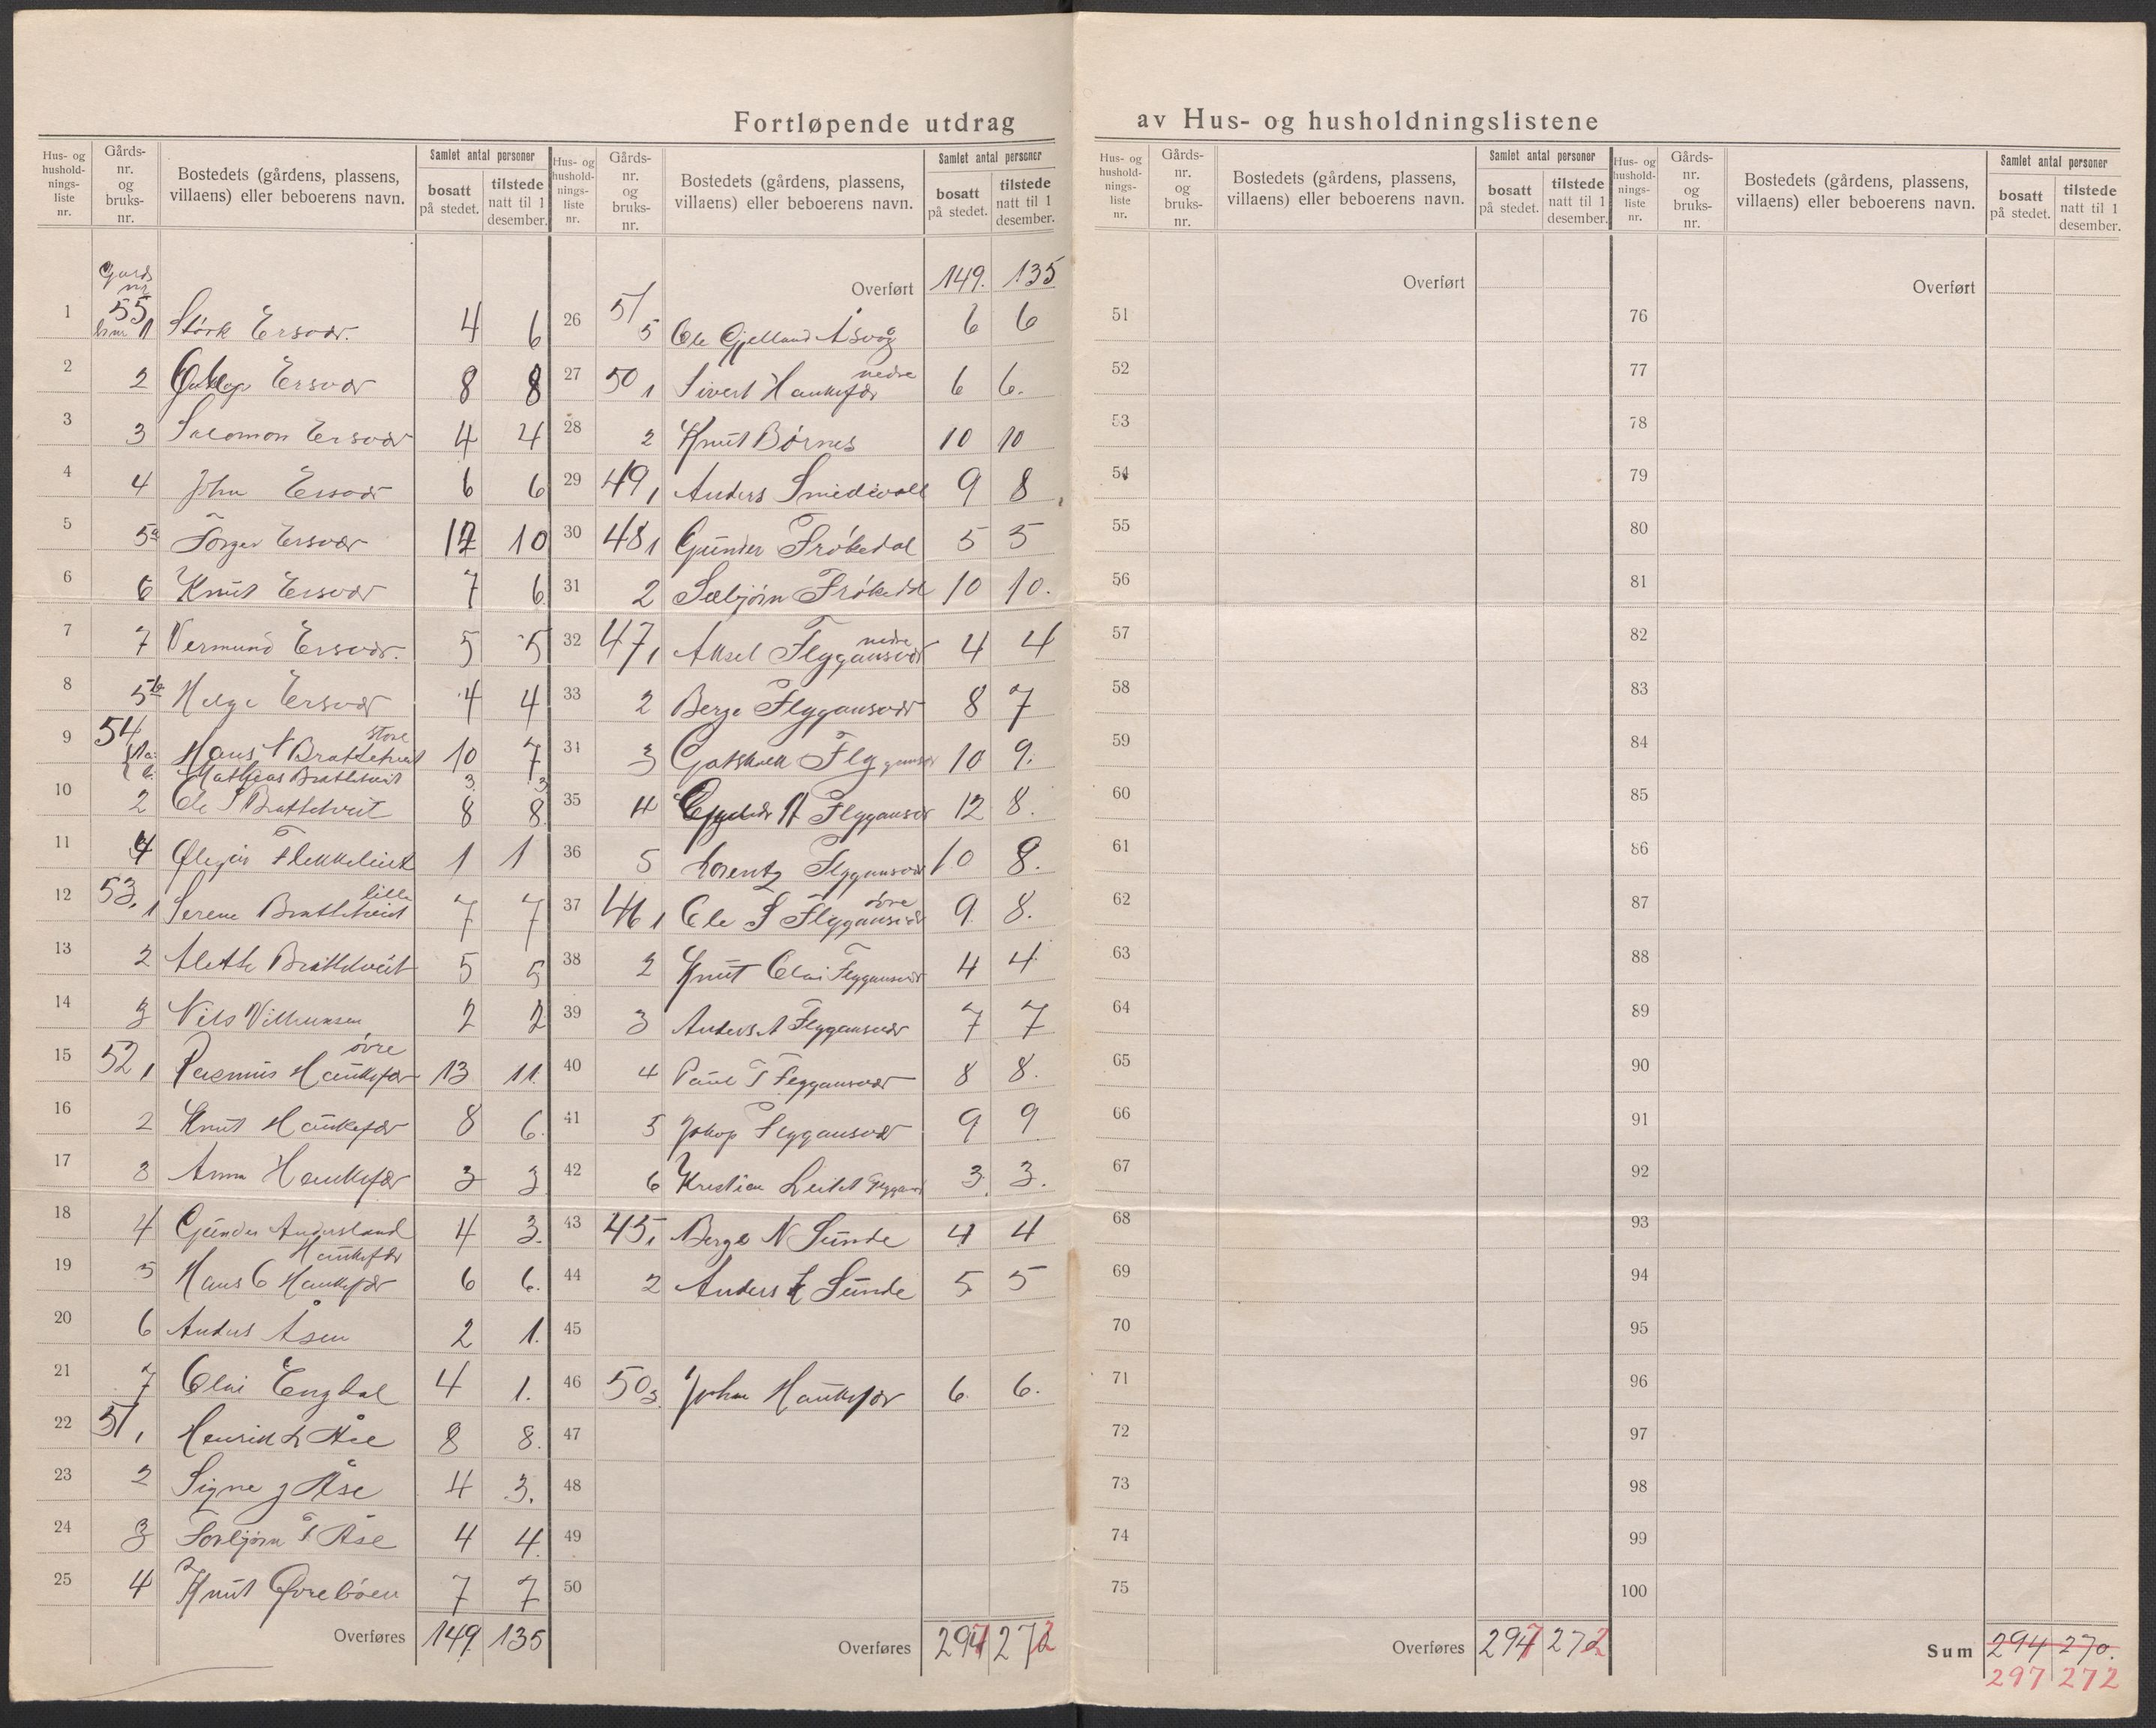 Fortløpende utdrag av Hus- og husholdningslistene
Hus- og hushold-nings-liste nr. Gårds-nr. og bruks-nr. Bostedets (gårdens, plassens, villaens) eller beboerens navn. Samlet antal personer bosatt på stedet. tilstede natt til 1 desember.
Hus- og hushold-nings-liste nr. Gårds-nr. og bruks-nr. Bostedets (gårdens, plassens, villaens) eller beboerens navn. Samlet antal personer bosatt på stedet. tilstede natt til 1 desember.
Gards nr
1 55 bnr 1 Størk Ersvær. 4 6
2 2 Ersvær 8 8
3 3 Salomon Ersvær 4 4
4 4 John Ersvær 6 6
5 5a Torger Ersvær 10
6 6 Knut Ersvær 7 6
7 7 Vermund Ersvær. 5 5
8 5b Helge Ersvær 4 4
9 54 1a Hans Brattetveit store 10 7
b. Mathias Brattetveit 3 3
10 2 Ole S Brattetveit 8 8
11 4 1 1
12 53, 1 Serene Brattetveit lille 7 7
13 2 Alette Brattetveit 5 5
14 3 Nils 2 2
15 52, 1 Rasmus Haukefær øvre 13 11.
16 2 Knut Haukefær 8 6.
17 3 Anna Haukefær 3 3
18 4 Gunder Andersland Haukefær 4 3.
19 5 Hans C Haukefær 6 6.
20 6 Anders Åsen 2 1.
21 7 Olai Engdal 4 1.
22 51, 1 Henrik L Åse 8 8.
23 2 Signe J Åse 4 3.
24 3 Torbjørn T Åse 4 4.
25 4 Knut Øvrebøen 7 7
Overføres 149. 135
Overført 149. 135
26 51 5 Ole Gjelland Åsvåg 6 6
27 50 1 Sivert Haukefær nedre 6 6.
28 2 Knut Børnes 10 10
29 49, 1 Anders Smedevoll 9 8
30 48 1 Gunder Frøkedal 5 5
31 2 Sæbjørn Frøkedal 10 10.
32 47, 1 Aksel Flyggansvær nedre 4 4
33 2 Berge Flyggansvær 8 7
34 3 Gotskalk Flyggansvær 10 9.
35 4 Flyggansvær 12 8.
36 5 Lorentz Flyggansvær 10 8.
37 46 1 Ole S Flyggansvær øvre 9. 8.
38 2 Knut Olai Flyggansvær 4 4
39 3 Anders A Flyggansvær 7 7
40 4 Paul T Flyggansvær 8 8.
41 5 Jakop Flyggansvær 9 9
42 6 Kristian Leitet 3. 3.
43 45, 1 Berge N Sunde 4 4
44 2 Anders Sunde 5 5
45
46 50 3 Johan Haukefær 6. 6.
47
48
49
50
Overføres 297 272
Hus- og hushold-nings-liste nr. Gårds-nr. og bruks-nr. Bostedets (gårdens, plassens, villaens) eller beboerens navn. Samlet antal personer bosatt på stedet. tilstede natt til 1 desember.
Overført
51
52
53
54
55
56
57
58
59
60
61
62
63
64
65
66
67
68
69
70
71
72
73
74
75
Overføres 297 272
Hus- og hushold-nings-liste nr. Gårds-nr. og bruks-nr. Bostedets (gårdens, plassens, villaens) eller beboerens navn. Samlet antal personer bosatt på stedet. tilstede natt til 1 desember.
Overført
76
77
78
79
80
81
82
83
84
85
86
87
88
89
90
91
92
93
94
95
96
97
98
99
100
Sum 294 270.
297 272